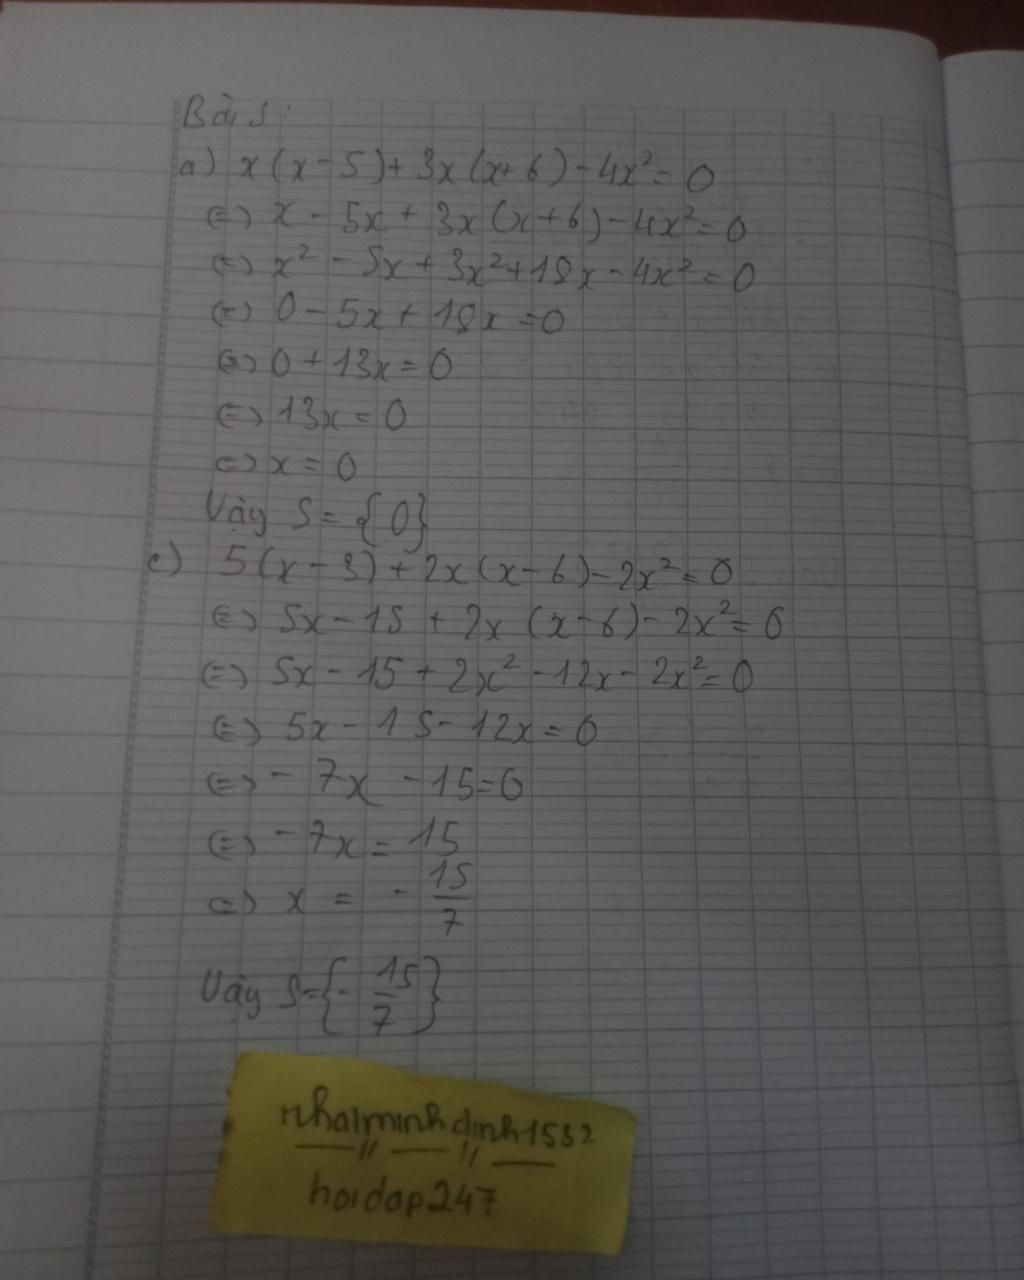 Bài 5:
a) x(x-5)+3x(x+6)-4x²=0
(=) x - 5x + 3x(x+6)-4x²=0
(=) x² - 5x + 3x²+18x-4x²=0
(=) 0-5x+18x=0
(=) 0+13x=0
(=) 13x=0
(=) x=0
Vậy S={0}
c) 5(x-3)+2x(x-6)-2x²=0
(=) 5x-15+2x(x-6)-2x²=0
(=) 5x-15+2x²-12x-2x²=0
(=) 5x-15-12x=0
(=) -7x-15=0
(=) -7x=15
(=) x = -15/7
Vậy S={-15/7}
nhalminhdinh1532
hoidap247